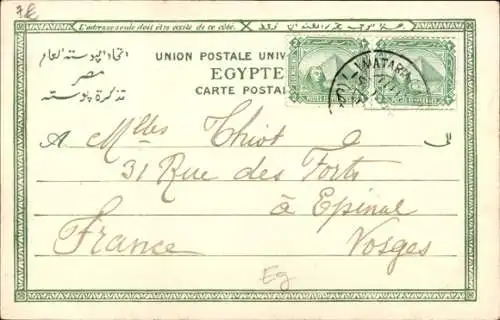 L'adresse seule doit être écrite de ce côté.
اتحاد البوسته العام
مصر
تذكرة بوسته
UNION POSTALE UNIV
EGYPTE
CARTE POSTAL
MATARI
A Mlles Thiot
31 Rue des Forts
à Epinal
France Vosges
Eg